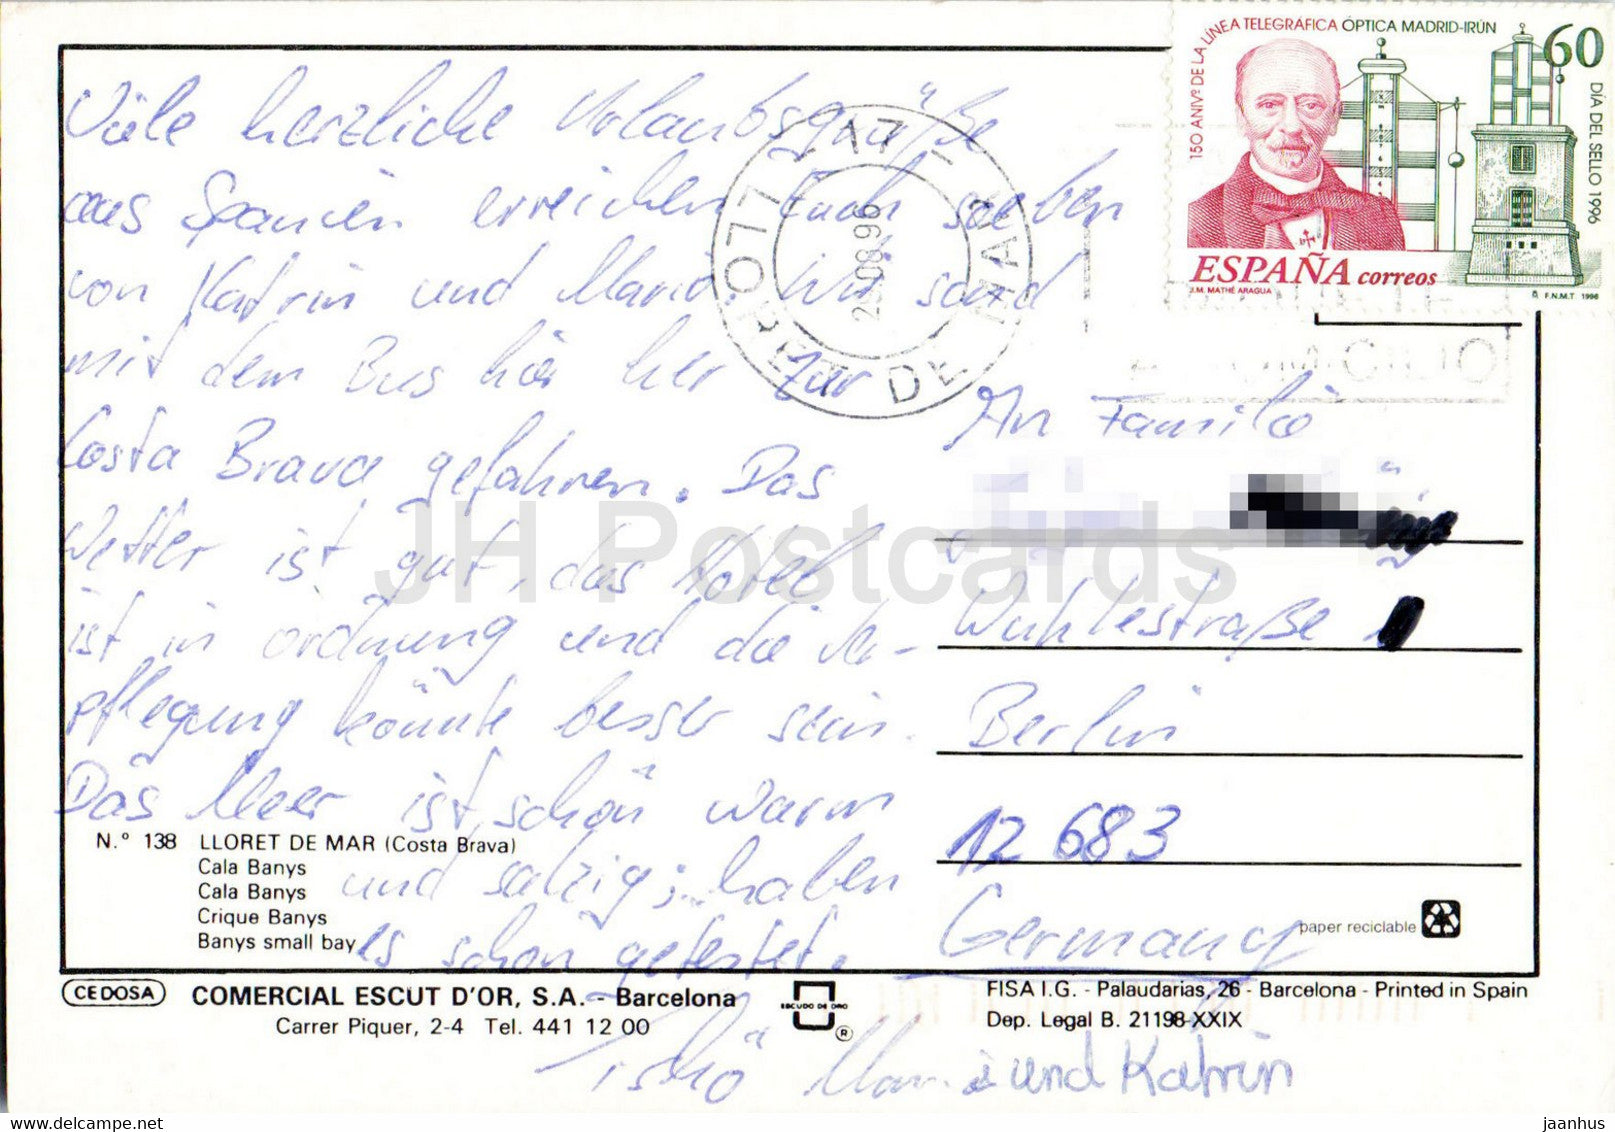 Viele herzliche Urlaubsgrüße
aus Spanien erreichen Euch soeben
von Katrin und Mario. Wir sind
mit dem Bus hier her zur
Costa Brava gefahren. Das
Wetter ist gut, das Hotel
ist in ordnung und die Ver-
pflegung könnte besser sein.
Das Meer ist schön warm
und salzig; haben
es schon getestet.
Tschö Mario und Katrin
150 ANIVº DE LA LÍNEA TELEGRÁFICA ÓPTICA MADRID-IRÚN
60
DÍA DEL SELLO 1996
ESPAÑA correos
J.M. MATHÉ ARAGUA
F.N.M.T. 1996
LLORET DE MAR
-17-
08 96
An Familie
Wuhlestraße
Berlin
12 683
Germany
N.º 138 LLORET DE MAR (Costa Brava)
Cala Banys
Cala Banys
Crique Banys
Banys small bay
paper reciclable
CEDOSA
COMERCIAL ESCUT D'OR, S.A. - Barcelona
Carrer Piquer, 2-4 Tel. 441 12 00
ESCUDO DE ORO
®
FISA I.G. - Palaudarias, 26 - Barcelona - Printed in Spain
Dep. Legal B. 21198-XXIX
JH Postcards
delcampe.net
jaanhus